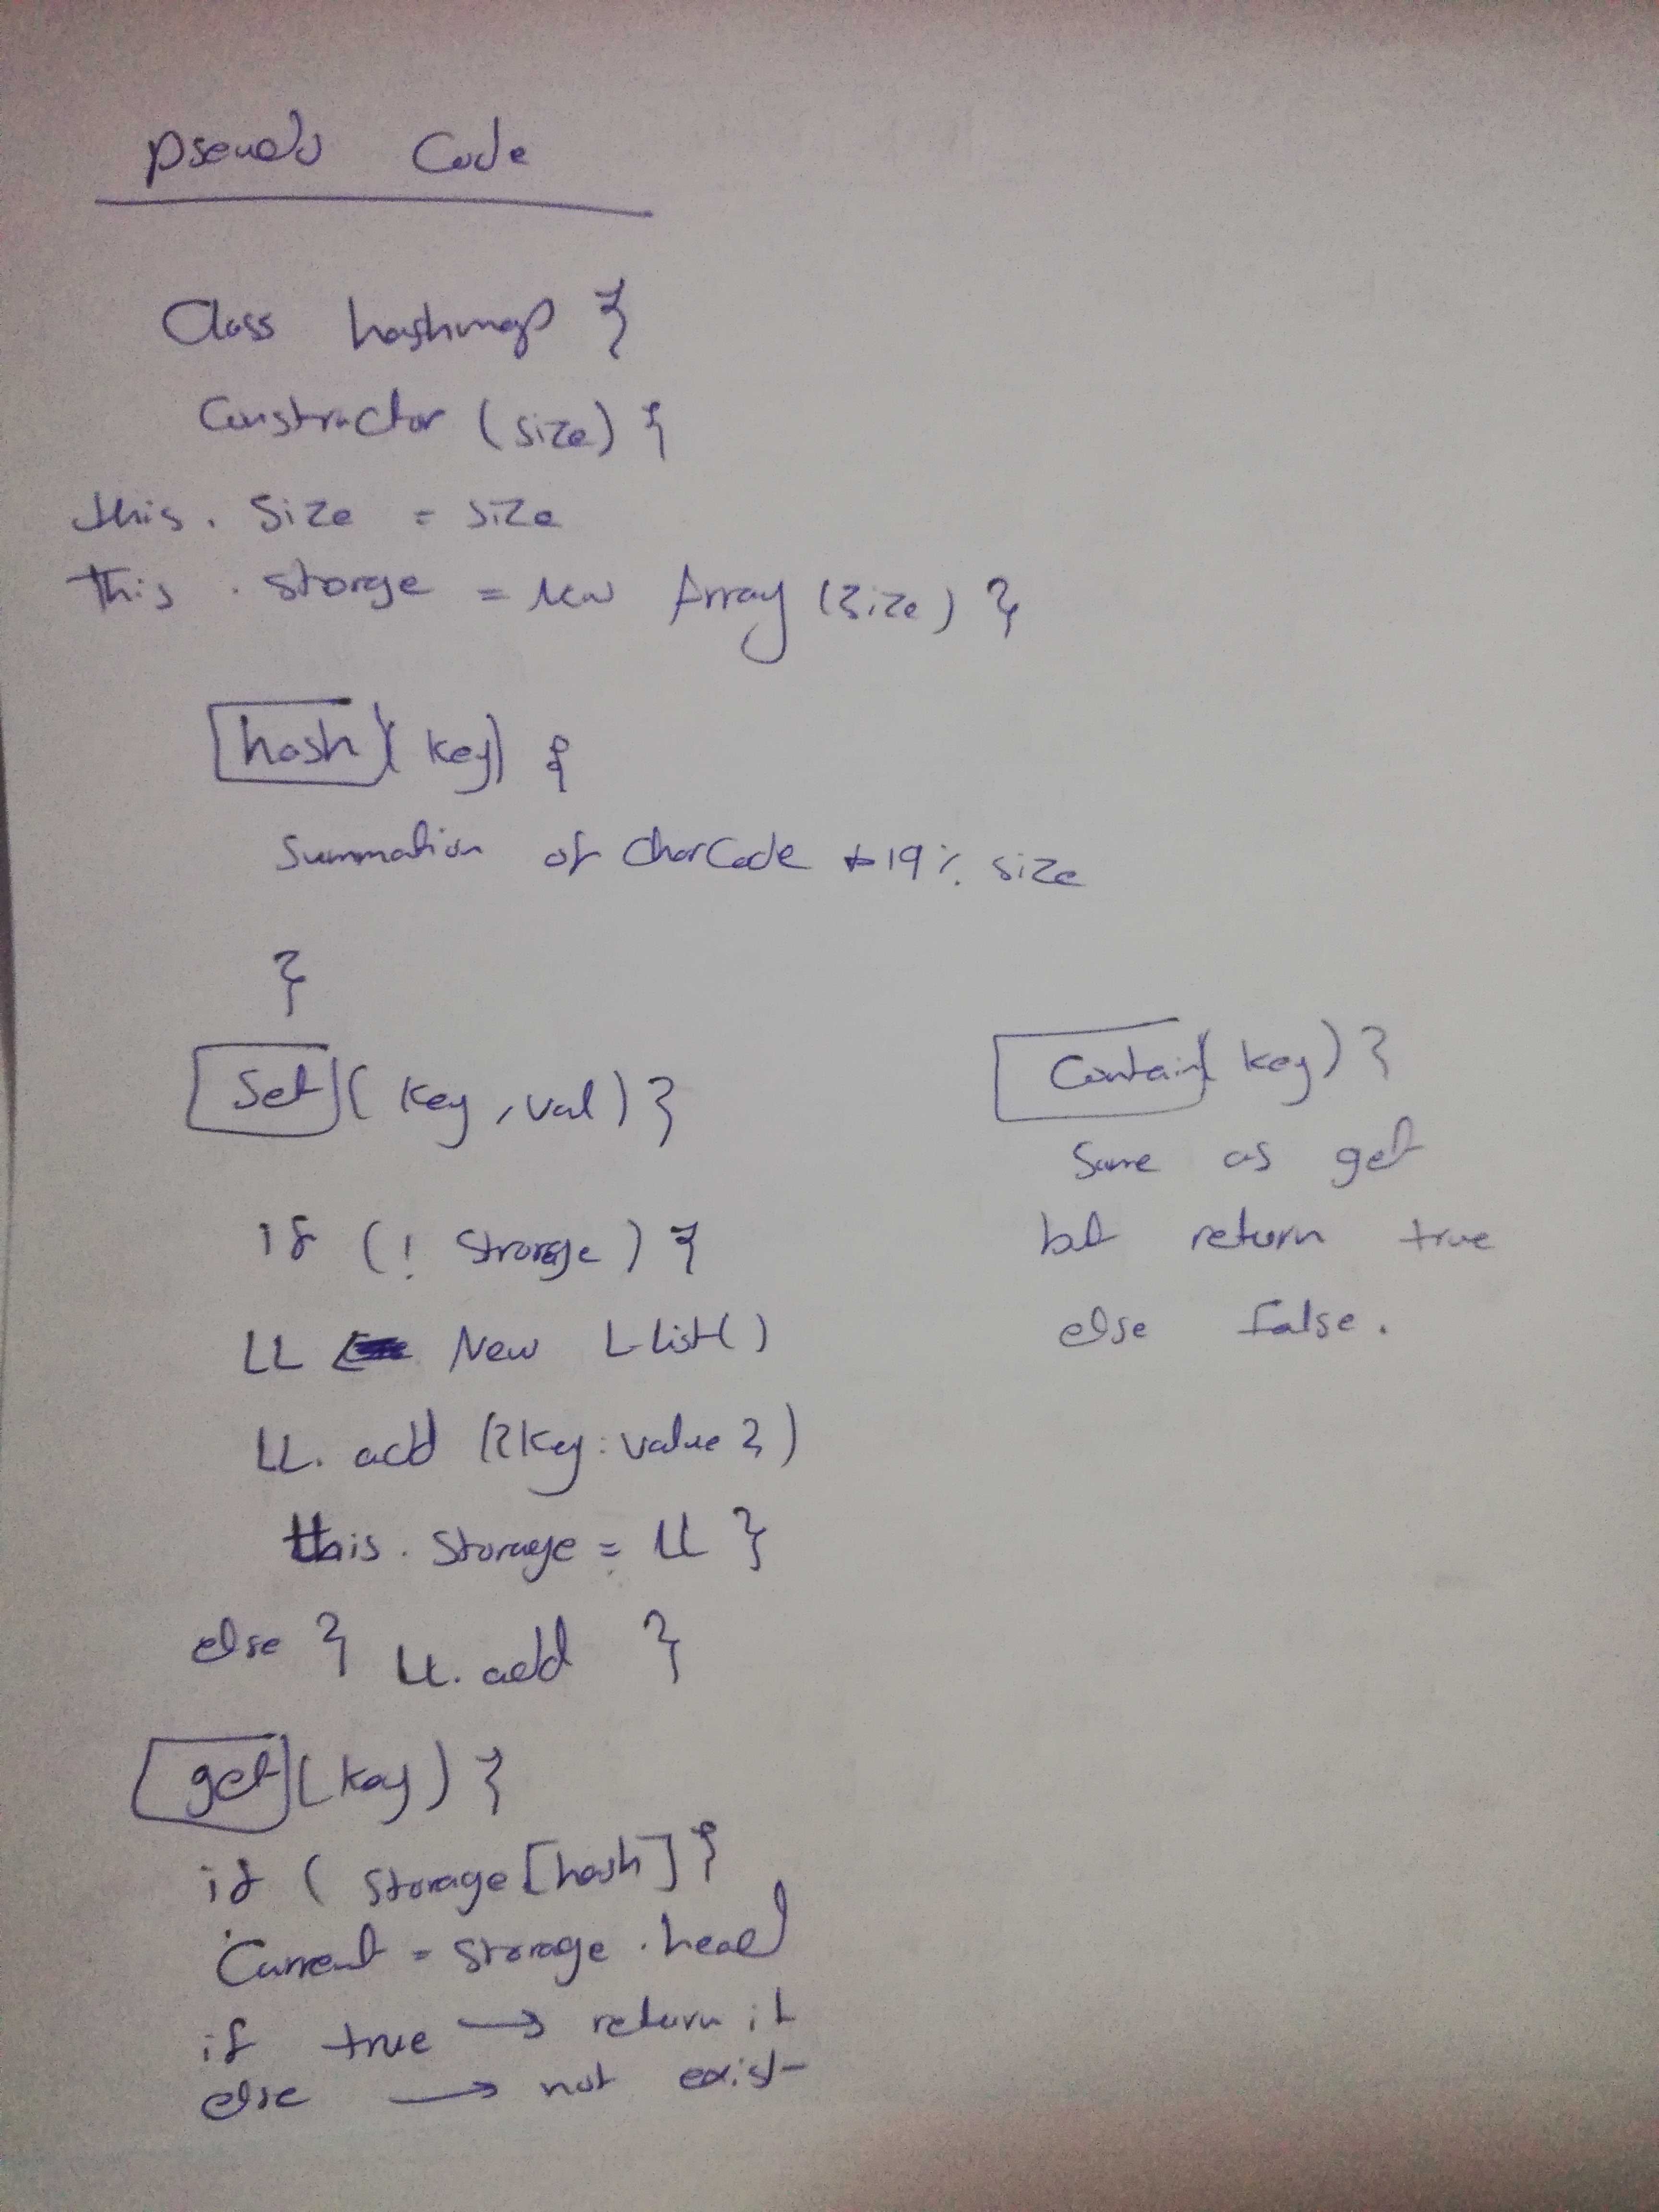 Pseudo Code
Class hashmap {
Constructor (size) {
this. Size = size
this . storge = New Array (size) }
hash (key) {
Summation of CharCode * 19 % size
}
Set (key, val) {
if (! Strorage) {
LL New LList()
LL. add ({key: value})
this. Storage = LL }
else { LL. add }
get (key) {
if ( Storage [hash] {
Current = Storage . head
if true → return it
else → not exist
Contain( key) {
Same as get
but return true
else false.